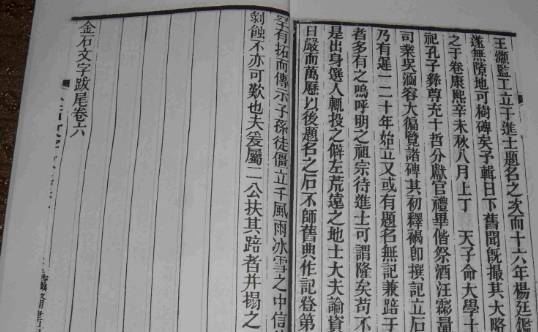 王灝監工立于進士題名之次而十六年楊廷鑑
遂無隙地可樹碑矣予輯日下舊聞既撮其大略
之于卷康熙辛未秋八月上丁 天子命大學士
祀孔子彝尊充十哲分獻官禮畢偕祭酒汪霦
司業吳涵容大徧覽諸碑其初釋褐即撰記立石
乃有遲一二十年始立又或有題名無記兼踣于
者多有之嗚呼明之祖宗待進士可謂隆矣苟不
是出身選人輒投之僻左荒遠之地士大夫論資
日嚴而萬歷以後題名之石不師舊典作記登第
罕有拓而傳示子孫徒僵立千風雨冰雪之中信
剝蝕不亦可歎也夫爰屬二公扶其踣者并搨之
金石文字跋尾卷六